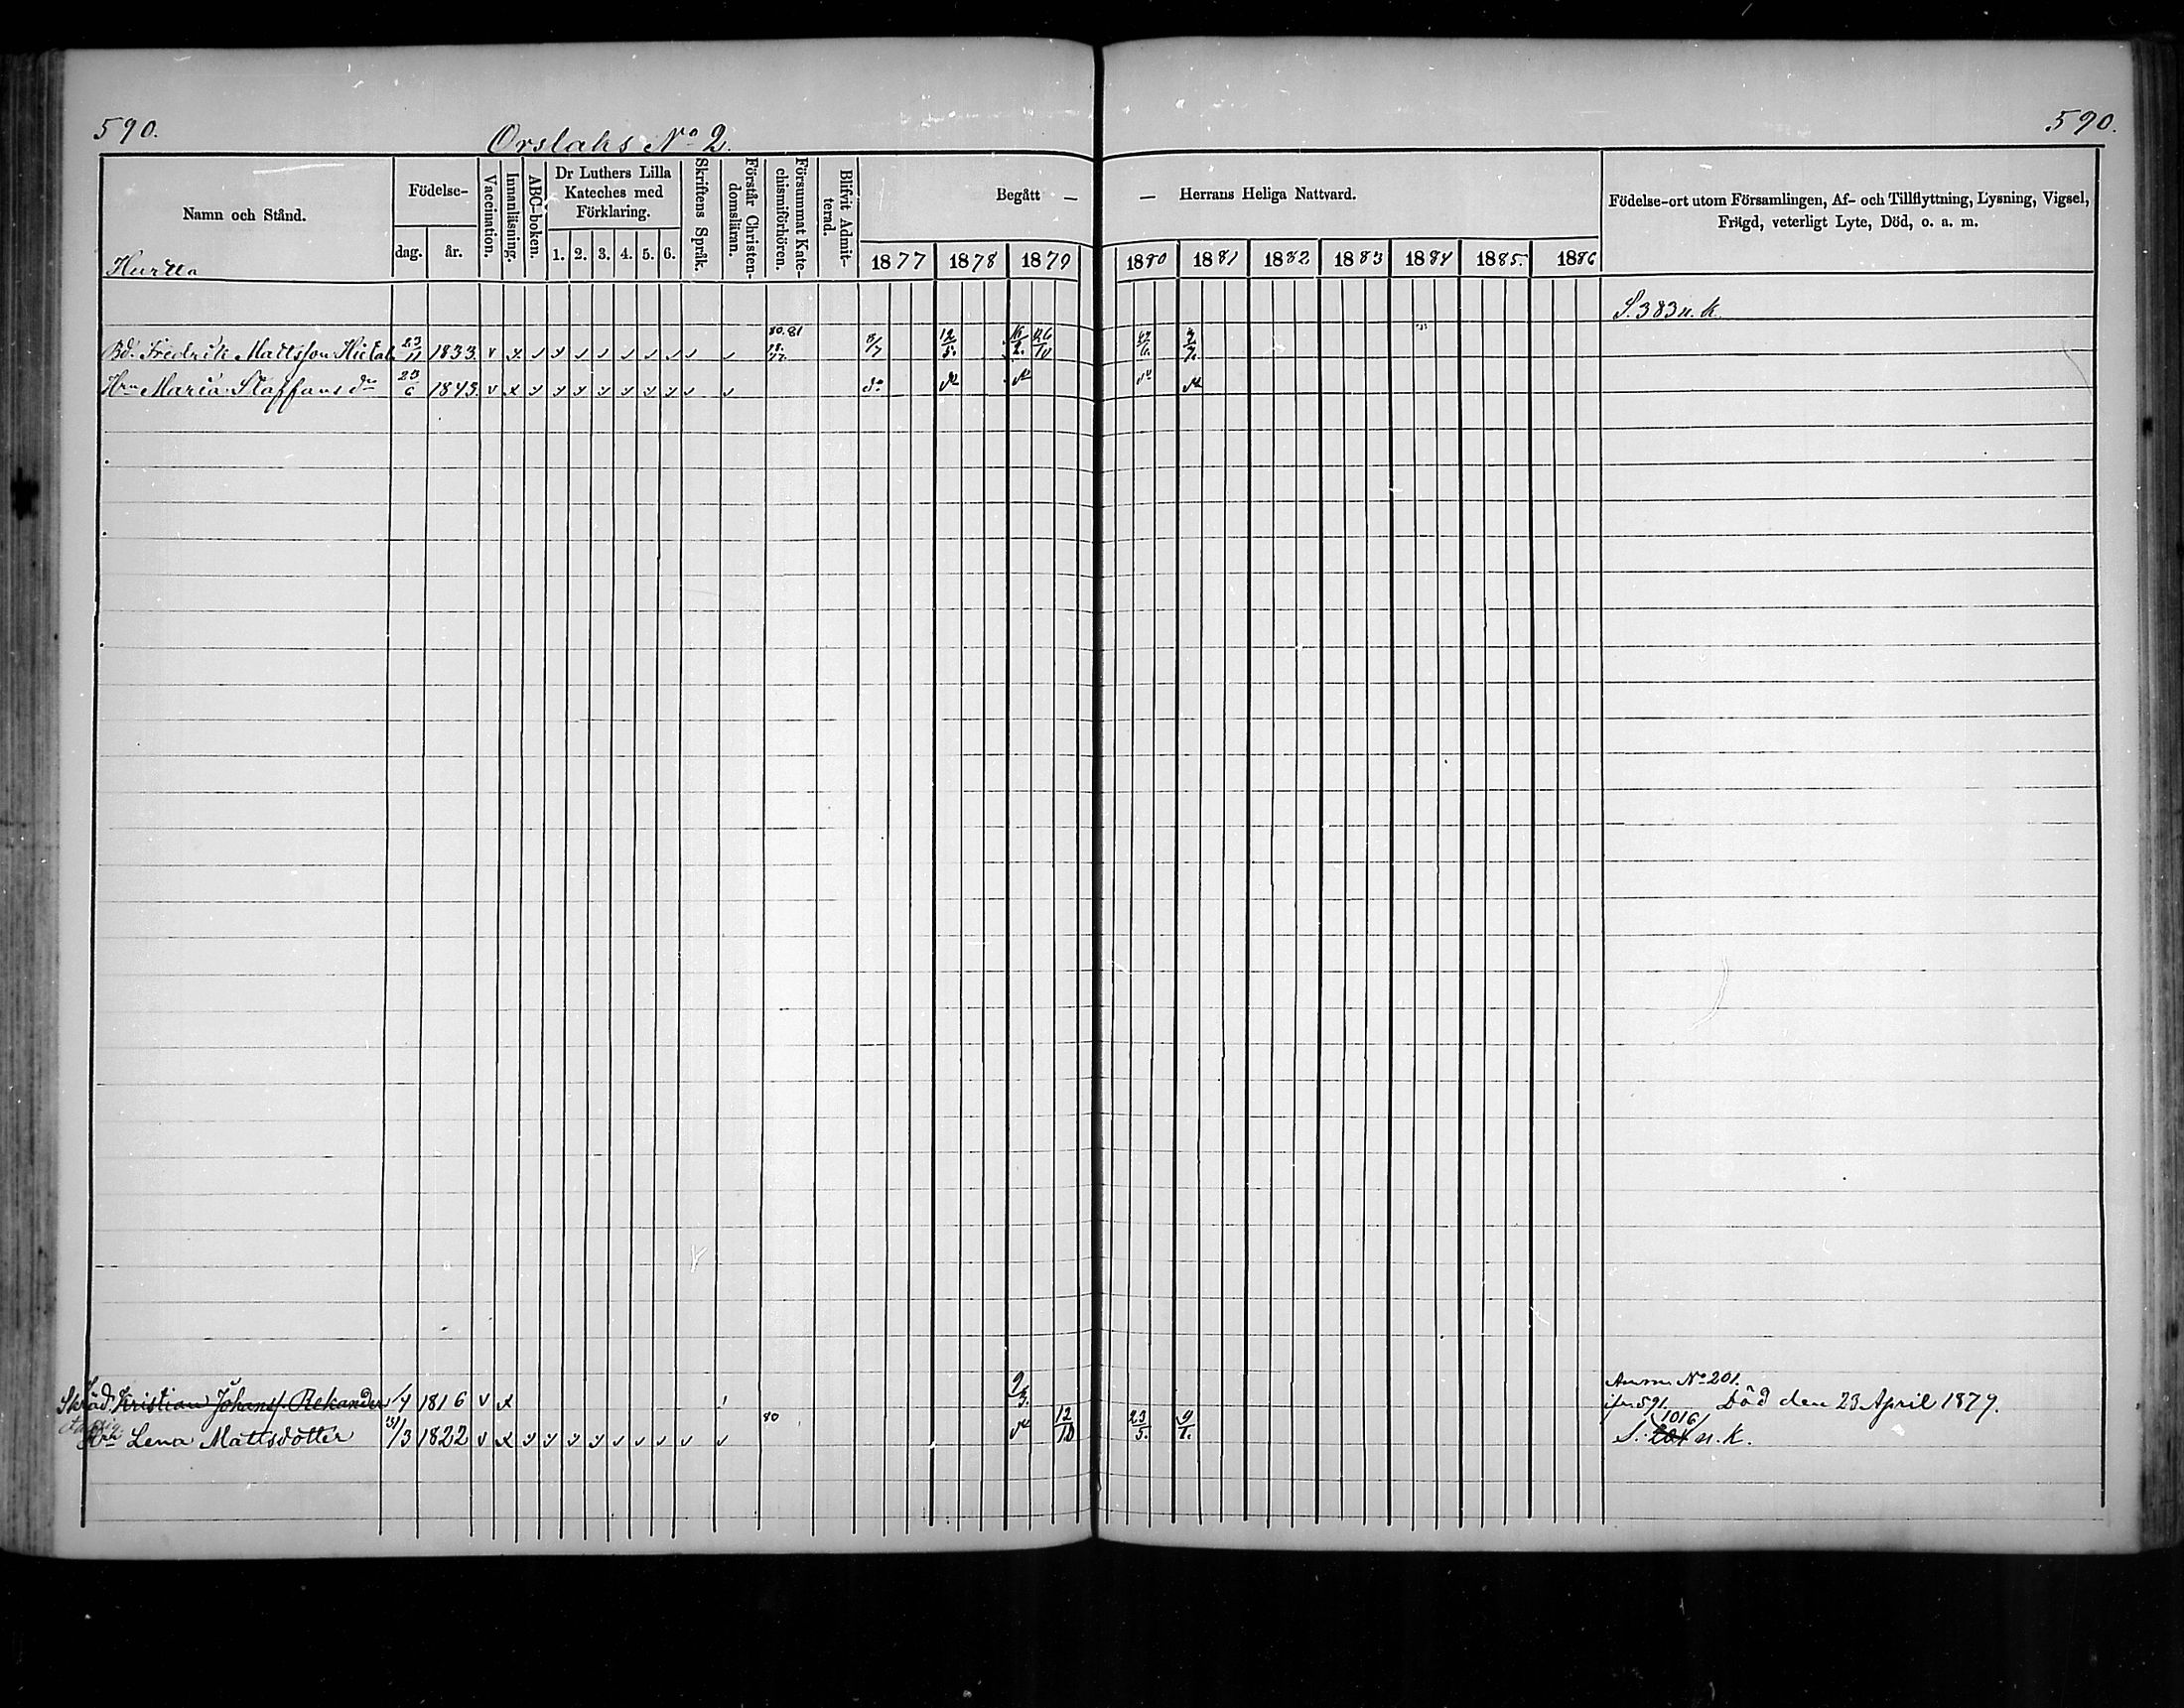 590.
590.
Orslahs No 2.
Namn och Stånd.
Hurtta
Födelse-
dag.
år.
Vaccination.
Innanläsning.
ABC-boken.
Dr Luthers Lilla
Kateches med
Förklaring.
1. 2. 3. 4. 5. 6.
Skriftens Språk.
Förstår Christen-
domsläran.
Försummat Kate-
chismiförhören.
Blifvit Admit-
terad.
Begått —
— Herrans Heliga Nattvard.
1877 1878 1879 1880 1881 1882 1883 1884 1885. 1886
Födelse-ort utom Församlingen, Af- och Tillflyttning, Lysning, Vigsel,
Frägd, veterligt Lyte, Död, o. a. m.
S. 383 n. k.
Bd. Fredrik Mattsson 23/11 1833. v x 80. 81 12/5. 7/7.
Hru Maria Staffans dr 1843. v x do do do do do
Anm. No 201.
Skräd. Kristian Johanss. Rekander 1816 v x 9/3. ifr 591. Död den 23 April 1879.
1016
Hru Lena Mattsdotter 1822 v x 80 do 12/10 23/5. 9/1. S. 201 n. k.